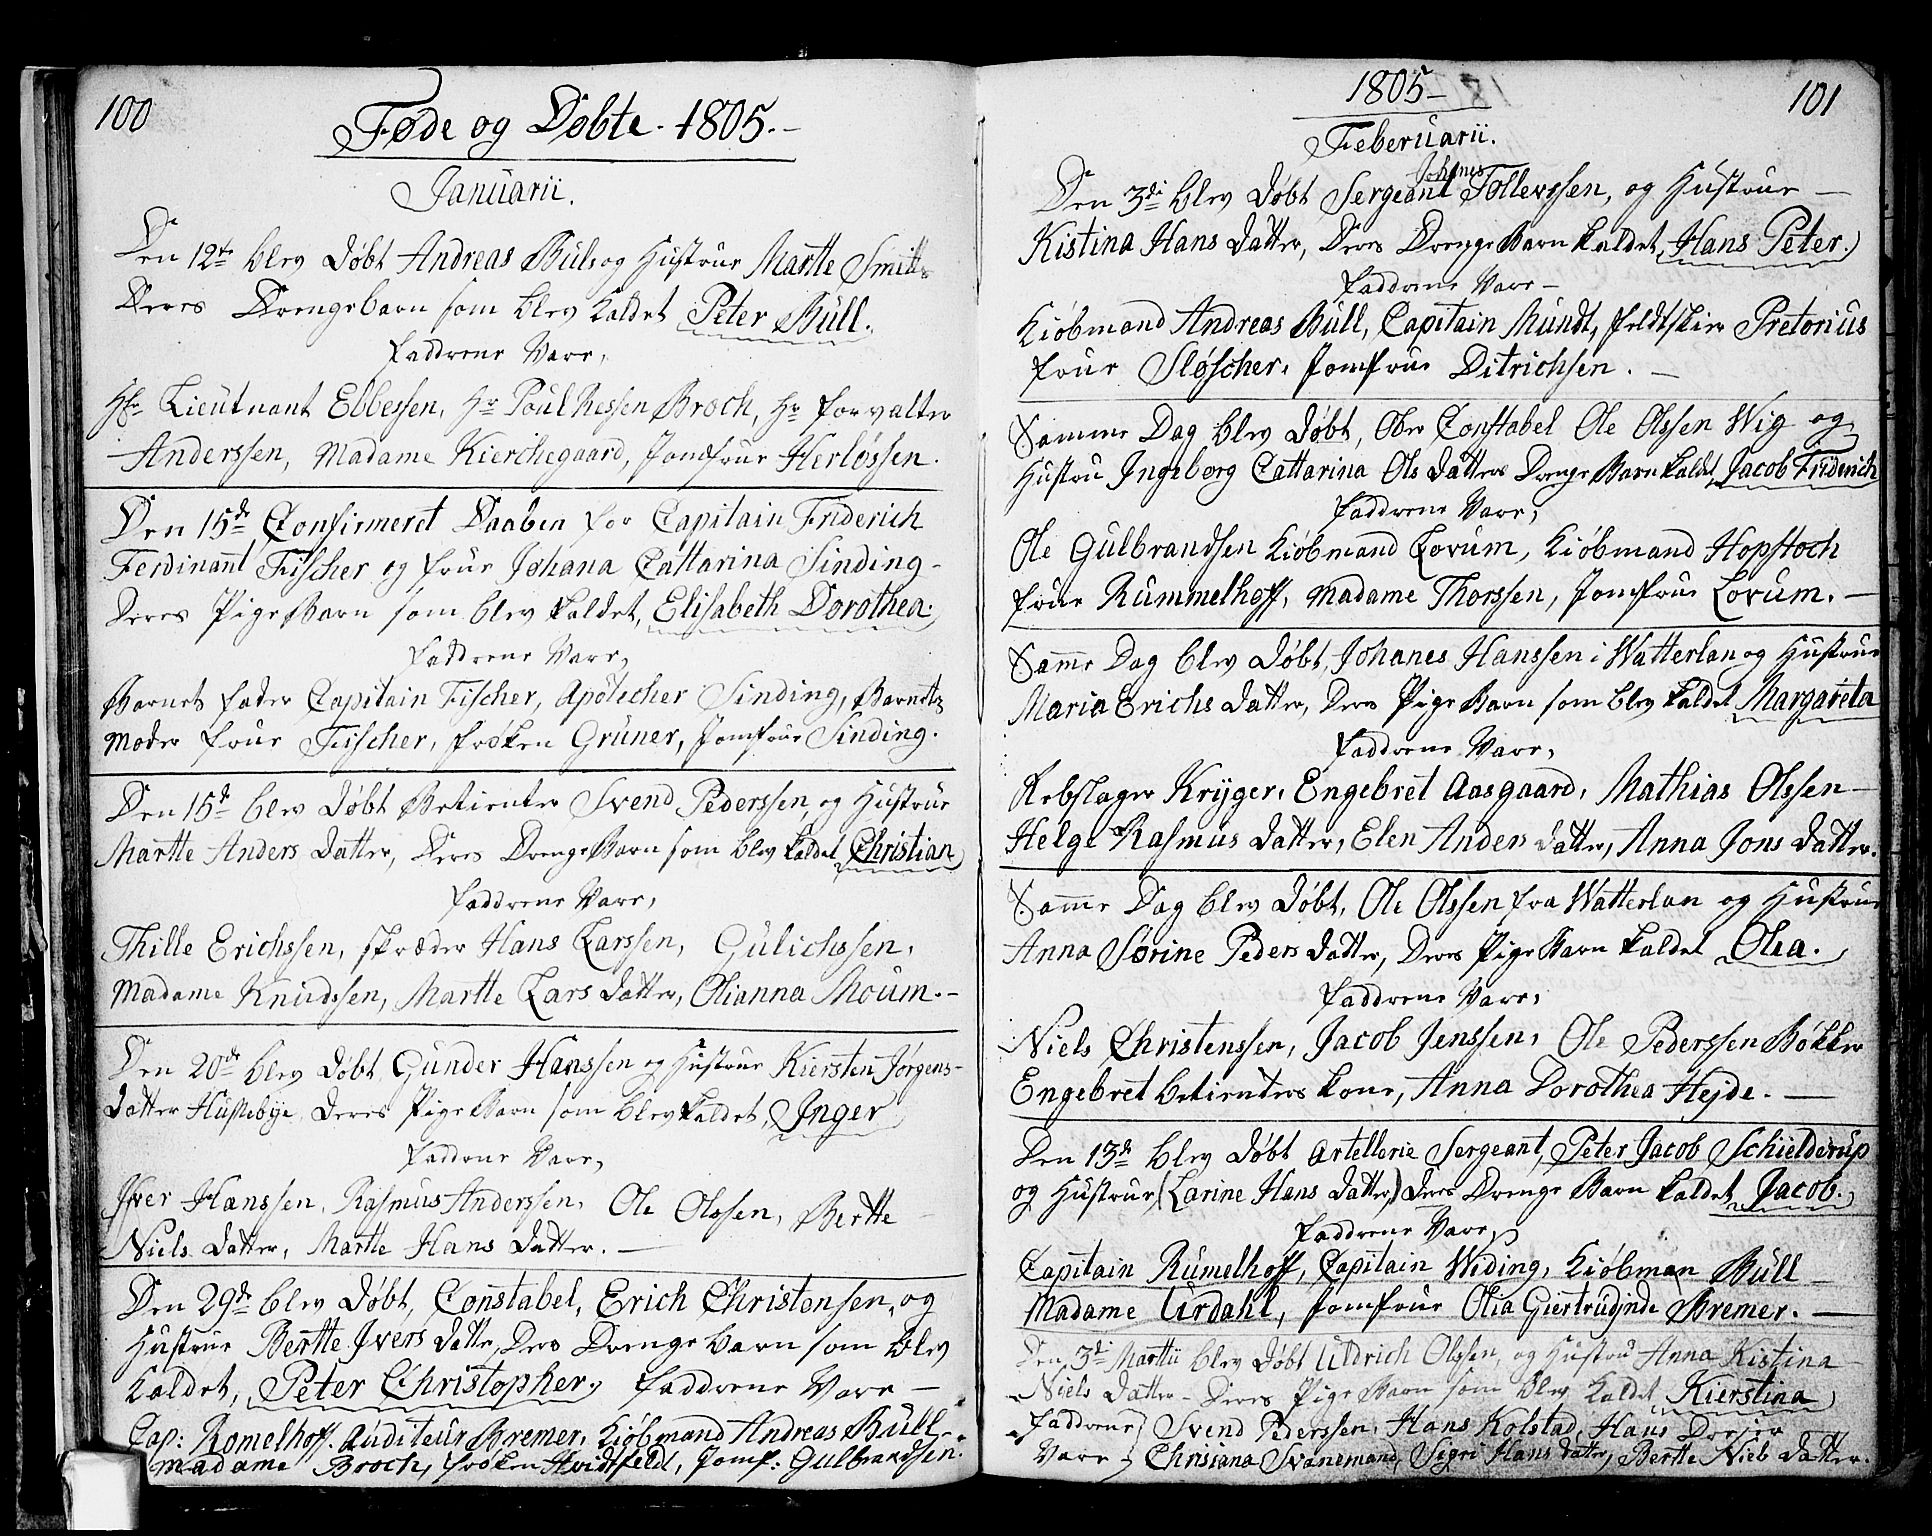 100
Føde og Døbte. 1805.
Januarii.
Den 12te blev Døbt Andreas Buls og Hustrue Martte Smitts
Deres Drengebarn som blev kaldet Peter Bull.
Faddrene Vare,
Hr Lieutnant Ebbessen, Hr Poul Ressen Broch, Hr forvalter
Anderssen, Madame Kierchegaard, Jomfrue Herløssen.
Den 15de Confirmeret Daaben for Capitain Friderich
Ferdinannt Fischer og frue Johana Cattarina Sinding
Deres Pige Barn som blev kaldet, Elisabeth Dorothea.
Faddrene Vare,
Barnets fader Capitain Fischer, Apotecher Sinding, Barnets
Moder frue Fischer, frøken Gruner, Jomfrue Sinding.
Den 15de blev Døbt Betienter Svend Pederssen, og Hustrue
Martte Anders Datter, Deres Drenge Barn som blev kaldet Christian
Faddrene Vare,
Thille Erichssen, skræder Hans Larssen, Gulichssen,
Madame Knudssen, Martte Lars Datter, Olianna Moum.
Den 20de blev Døbt Gunder Hanssen og Hustrue Kiersten Jørgens-
Datter Hustebye, Deres Pige Barn som blev kaldet, Inger
Faddrene Vare,
Iver Hanssen, Rasmus Anderssen, Ole Olssen, Bertte
Niels Datter, Martte Hans Datter.
Den 29de blev Døbt, Constabel, Erich Christensen, og
Hustrue Bertte Ivers datter, Deres Drenge barn som blev
kaldet, Peter Christopher, Faddrene Vare
Cap: Romelhoff. Auditeur Bremer, Kiøbmand Andreas Bull
Madame Broch, frøken Hvidtfeldt, Jomf: Gulbrandsen.
1805
101
Feberuarii.
Johanes
Den 3di blev Døbt Sergeant Tollerssen, og Hustrue
Kistina Hans Datter, Deres Drenge Barn kaldet, Hans Peter.
Faddrene Vare
Kiøbmand Andreas Bull, Capitain Mundt, feldtskier Pretorius
frue Sløscher, Jomfrue Ditrichsen.
Samme Dag blev Døbt, Ober Constabel Ole Olssen Wig og
Hustru Ingeborg Cattarina Ols Datters Drenge Barn kaldt, Jacob Friderich
Faddrene Vare,
Ole Gulbrandsen Kiøbmand Lorum, Kiøbmand Hopstoch
frue Rummelhoff, Madame Thorssen, Jomfrue Lorum.
Samme Dag blev Døbt, Johanes Hanssen i Watterlan og Hustrue
Maria Erichs Datter, Deres Pige Barn som blev kaldet Margareta
Faddrene Vare,
Rebslager Kryger, Engebret Aasgaard, Mathias Olssen
Helge Rasmus Datter, Elen Anders datter, Anna Jons Datter.
Samme Dag blev Døbt, Ole Olssen fra Watterlan og Hustrue
Anna Sørine Peders datter, Deres Pige Barn kaldet Olea.
Faddrene Vare,
Niels Christenssen, Jacob Jenssen, Ole Pederssen Bøkker
Engebret betienters kone, Anna Dorothea Hejde.
Den 13de blev Døbt Artellerie Sergeant, Peter Jacob Schielderup
og Hustrue (Larine Hans Datter,) Deres Drenge Barn kaldet Jacob.
Faddrene Vare,
Capitain Rumelhoff, Capitain Widing, Kiøbman Bull
Madame Urdahl, Jomfrue Olia Giertrudinde Bremer.
Den 3di Martii blev Døbt Uldrich Olssen, og Hustru Anna Kistina
Niels Datter - Deres Pige Barn som blev kaldet Kierstina
Faddrene Svend Pederssen, Hans Kolstad, Hans
Vare Chrisiana Svanemand, Sigri Hans datter, Bertte Niels Datter.